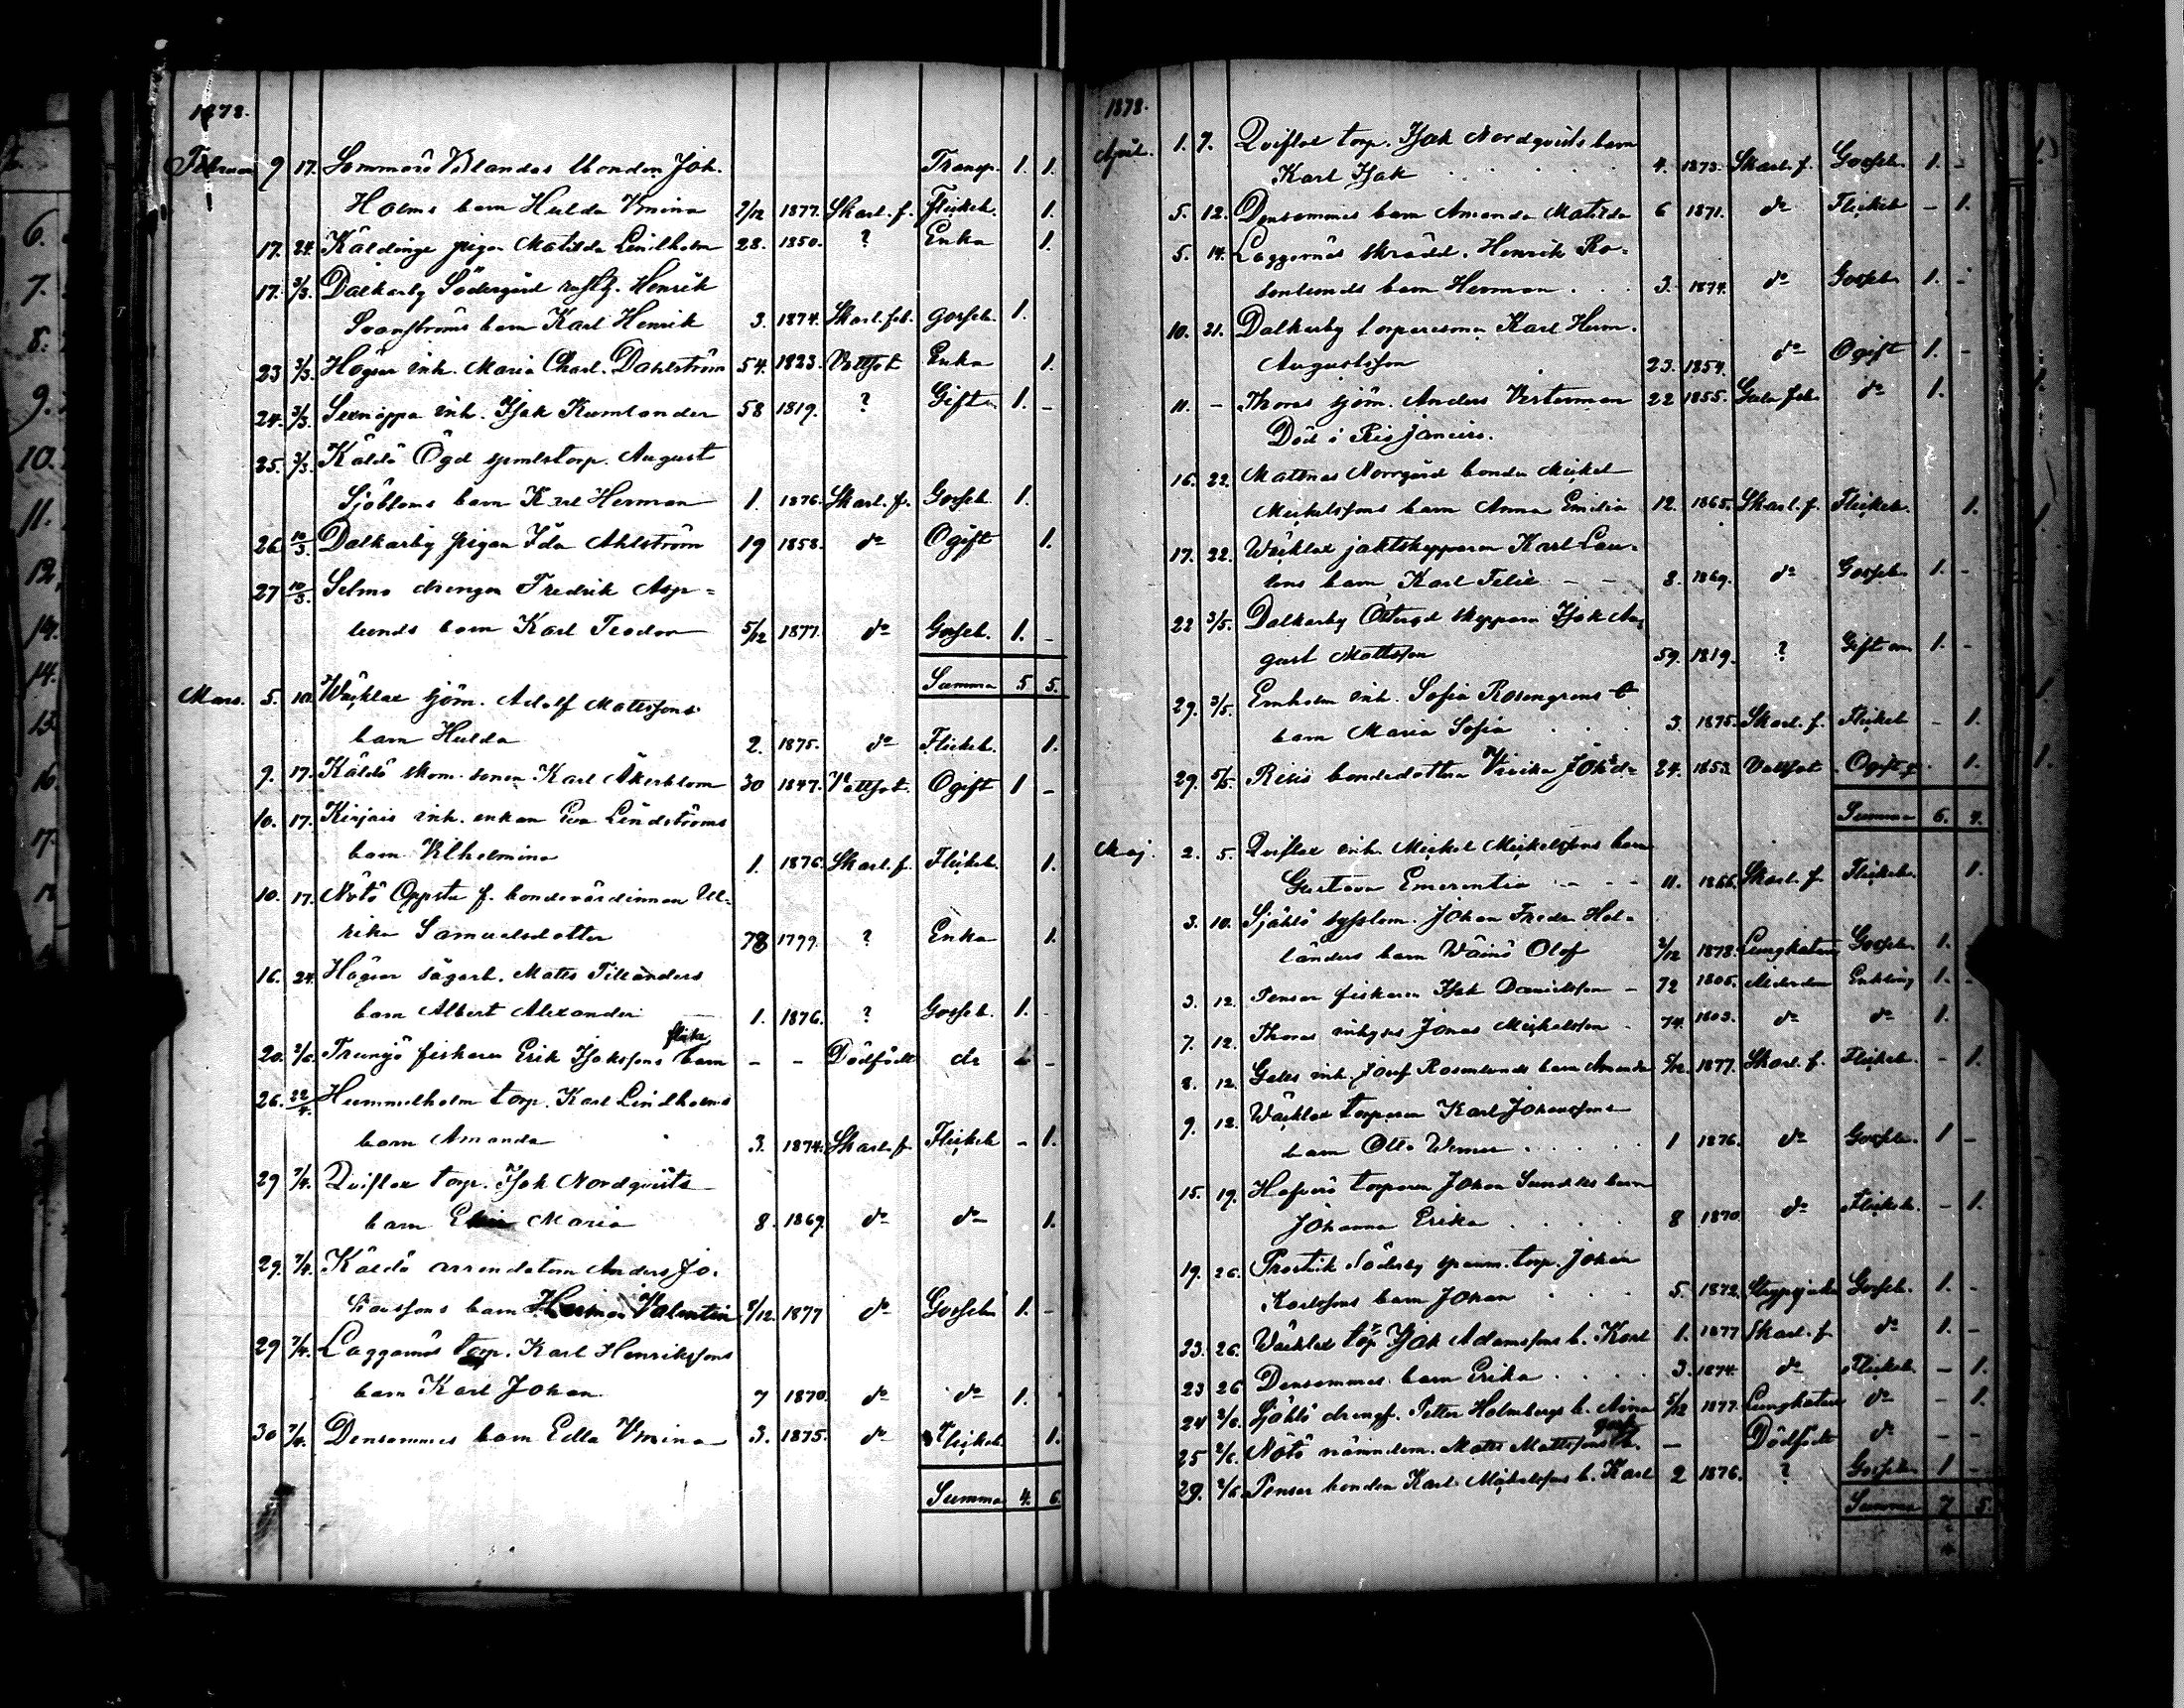 1878.
Februari 9 17. Sommarö Vestlandas bonden Joh. Transp. 1. 1.
Holms barn Hulda Vmina 2/12 1877. Skarl. f. Flickeb. 1.
17. 24. Käldinge pigan Matilda Lindholm 28. 1850. ? Enka 1.
17. 3/3. Dalkarby Södergård Henrik
Svanströms barn Karl Henrik 3. 1874. Skarl. feb. gosseb. 1.
23 3/3. Högsar inh. Maria Charl. Dahlström 54. 1823. Vattsot Enka 1.
24. 3/3. Sexnappa inh. Isak Kumlander 58 1819. ? Gift 1. -
25. 3/3. Käldö Ögd spmlstorp. August
Sjöbloms barn Karl Herman 1. 1876. Skarl. f. Gosseb. 1.
26 10/3. Dalkarby pigan Ida Ahlström 19 1858. do Ogift 1.
27 10/3. Selmo drengen Fredrik Asp=
lunds barn Karl Teodor 5/12 1877. do Gosseb. 1. -
Summa 5 5.
Mars. 5. 10. Wäcklax sjöm. Adolf Mattssons
barn Hulda 2. 1875. do Flickeb. 1.
9. 17. Käldö skom. sonen Karl Åkerblom 30 1847. Vattsot. Ogift 1 -
10. 17. Kirjais inh. enkan Eva Lindströms
barn Vilhelmina 1. 1876. Skarl. f. Flickeb. 1.
10. 17. Nötö Oppsta f. bondevärdinnan Ul-
rika Samuelsdotter 78 1799. ? Enka 1.
16. 24. Högsar sågarb. Mats Tillanders
barn Albert Alexander 1. 1876. ? Gosseb. 1. -
flicke
20. 2/6. Trunsö fiskaren Erik Isakssons barn - - Dödfödt do -
26. 22/4. Hummelholm torp. Karl Lindholms
barn Amanda 3. 1874. Skarl. f. Flickeb - 1.
29 7/4. Qviflax torp. Isak Nordqvists
barn Maria 8. 1869. do do 1.
29. 7/4. Käldö arrendatorn Anders Jo.
hanssons barn Herman Valentin 8/12. 1877 do Gosseb. 1. -
29 7/4. Laggarnäs torp. Karl Henrikssons
barn Karl Johan 7 1870. do do 1.
30 7/4. Densammes barn Edla Vmina 3. 1875. do Flickeb. 1.
Summa 4. 6.
1878.
April. 1. 7. Qviflax torp. Isak Nordqvists barn
Karl Isak 4. 1873. Skarl. f. Gosseb. 1. -
5. 12. Densammes barn Amanda Matilda 6 1871. do Flickeb - 1.
5. 14. Laggarnäs skrädd. Henrik Ro-
senlunds barn Herman 3. 1874. do Gosseb 1. -
10. 21. Dalkarby torparesonen Karl Herm.
Augustsson 23. 1854. do Ogift 1. -
11. - Thoras sjöm. Anders Vesterman 22 1855. Gula feb. do 1.
Död i Rio Janeiro.
16. 22. Mattnäs Norrgård bonden Mickel
Mickelssons barn Anna Emilia 12. 1865. Skarl. f. Flickeb. 1.
17. 22. Wäcklax jaktskepparen Karl Lau-
rens barn Karl Felix - - 8. 1869. do Gosseb 1. -
22 3/5. Dalkarby Östergd skepparen Isak Au-
gust Mattsson 59. 1819. ? Gift 1. -
29. 3/5. Ernholm inh. Sofia Rosengrens
barn Maria Sofia 3. 1875. Skarl. f. Flickeb - 1.
29. 5/5. Risis bondedottern Vivika Johsd- 24. 1853. Vattsot Ogift 1.
Summa 6. 4.
Maj. 2. 5. Qviflax inh. Mickel Mickelssons barn
Gustava Emerentia - - - 11. 1866. Skarl. f. Flickeb. 1.
3. 10. Sjählö syssłom. Johan Fredr Hol-
länders barn Wäinö Olof 2/12 1878. Lungkatarr Gosseb 1. -
3. 12. Pensar fiskaren Isak Danielsson - 72 1805. Ålderdom Enkling 1. -
7. 12. Thoras inhyses Jonas Mickelsson - 74. 1803. do do 1.
8. 12. Galts inh. Josef Rosenlunds barn Amanda 5/12. 1877. Skarl. f. Flickeb. - 1.
9. 12. Wäcklax torparen Karl Johanssons
barn Otto Verner 1 1876. do Gosseb. 1 -
15. 19. Hafverö torparen Johan Sundets barn
Johanna Erika 8 1870 do Flickeb. - 1.
19. 26. Prostvik Söderby spanm. torp. Johan
Karlssons barn Johan 5. 1872. Strypsjuka Gosseb. 1. -
23. 26. Wäcklax torp. Isak Adamssons b. Karl 1. 1877 Skarl. f. do 1. -
23 26 Densammes barn Erika 3. 1874. do Flickeb. - 1.
24 2/6. Sjählö drengf. Petter Holmbergs b. Aina 5/12 1877. Lungkatarr do - 1.
25 2/6. Nötö nämndem. Mats Mattssons b. - Dödfödt do - -
29. 2/6 Pensar bonden Karl Mickelssons b. Karl 2 1876. ? Gosseb 1 -
Summa 7 5.